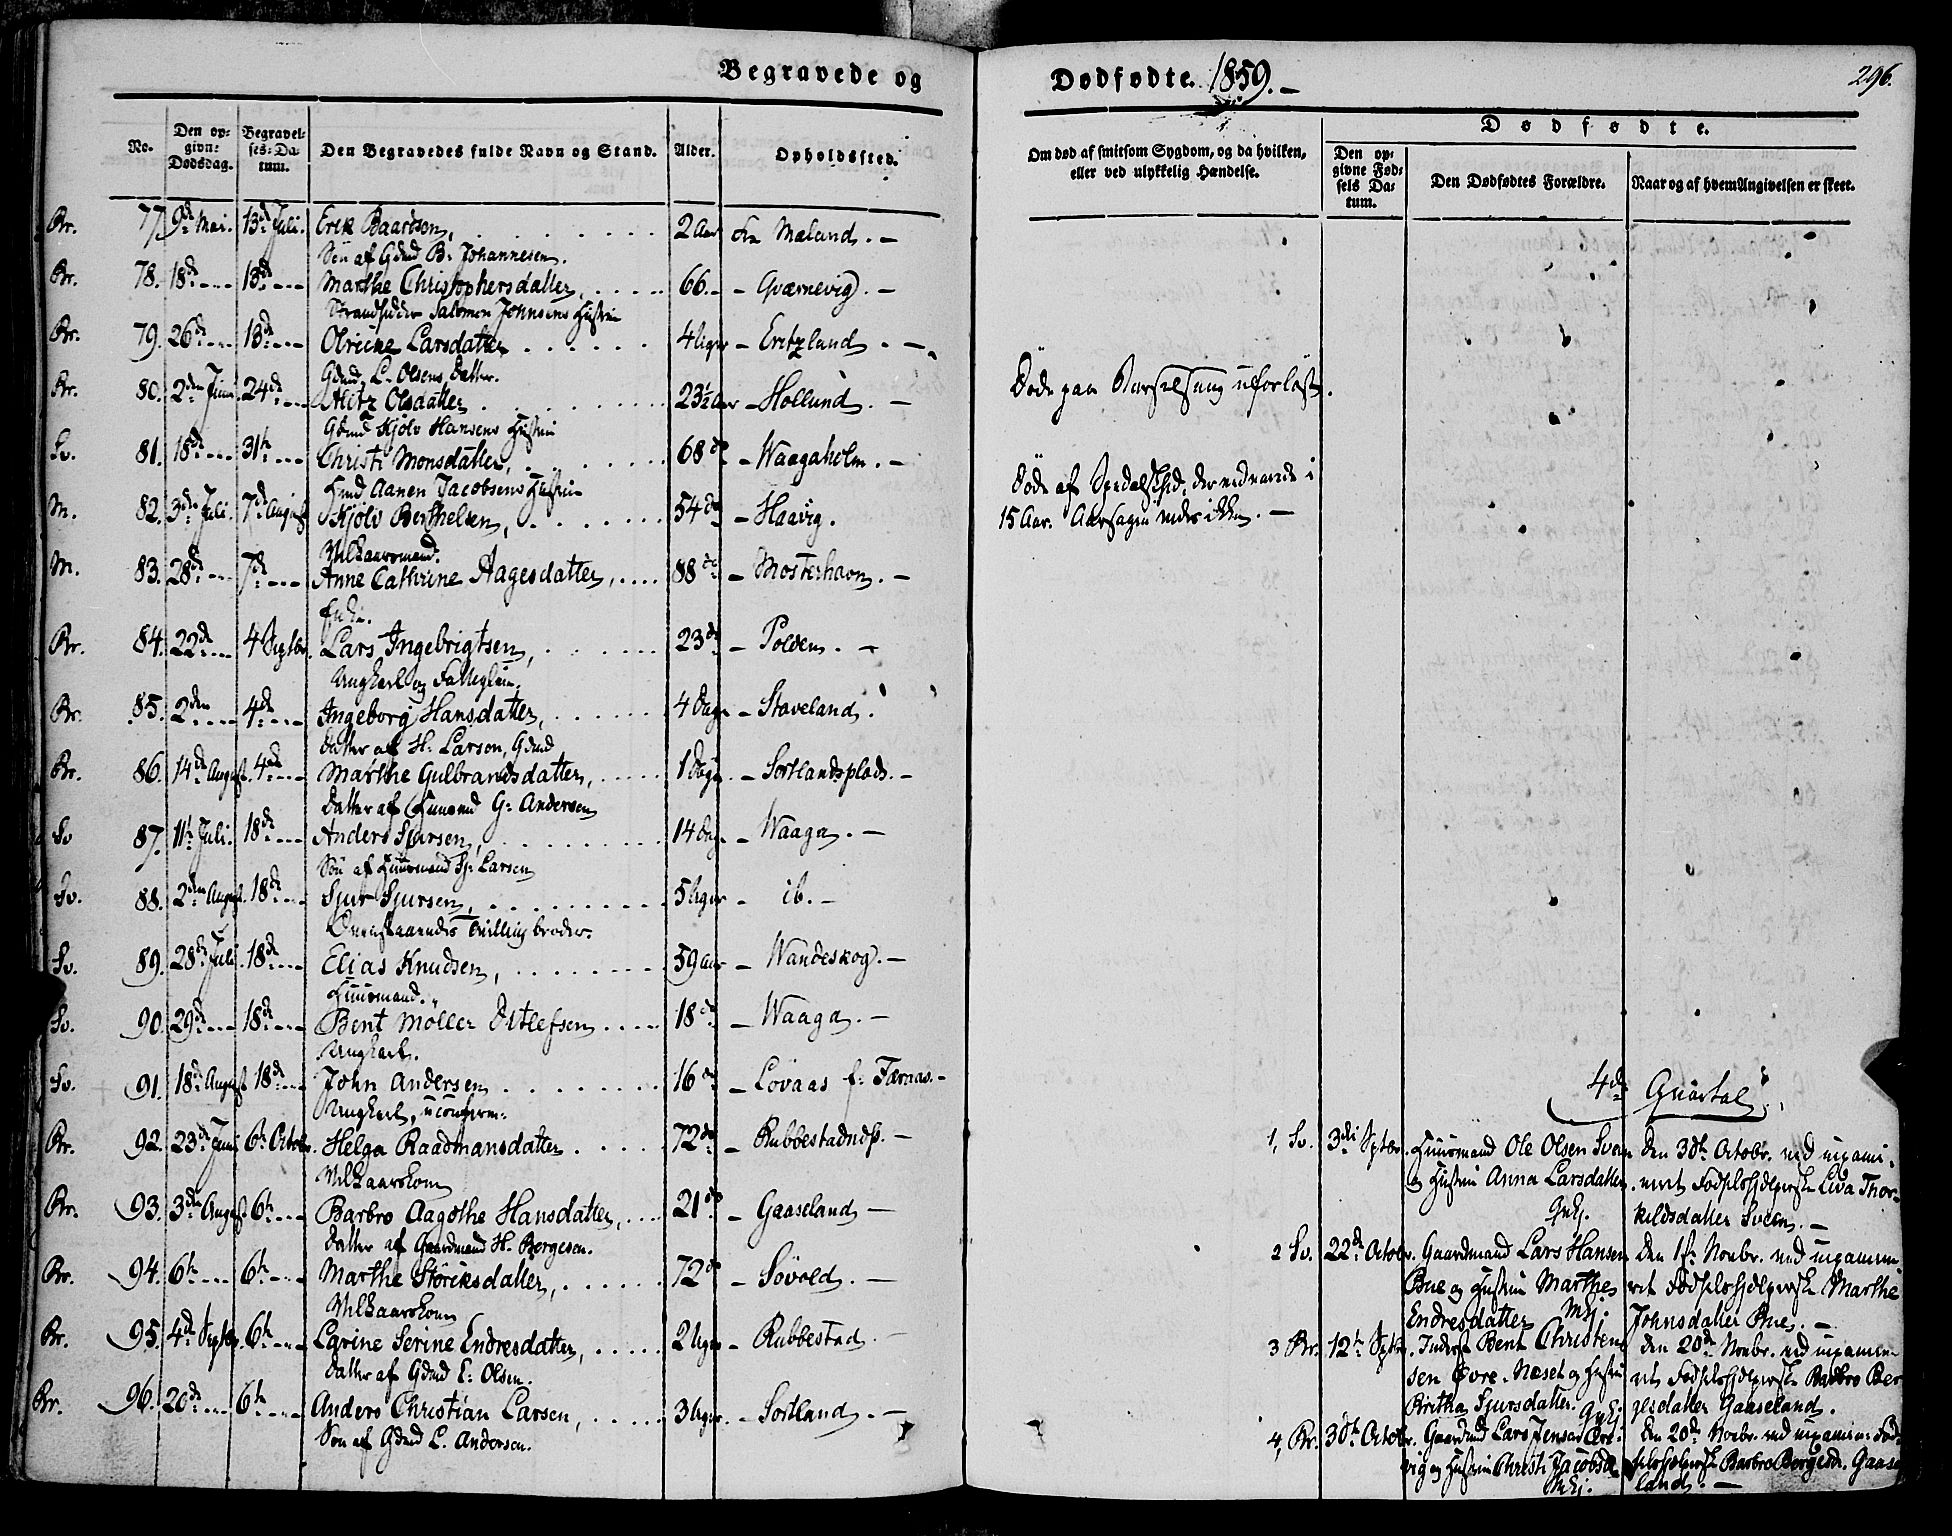 Begravede og
Dødfødte. 1859. —
296.
No.
Den opgivne Dødsdag.
Begravelses-Datum.
Den Begravedes fulde Navn og Stand.
Alder.
Opholdssted.
Om død af smitsom Sygdom, og da hvilken, eller ved ulykkelig Hændelse.
Dødfødte.
Den opgivne Fødsels Datum.
Den Dødfødtes Forældre.
Naar og af hvem Angivelsen er skeet.
Br. 77. 9de Mai. 13de Juli. Erik Baardsen, 2 Aar fra Mæland. —
Søn af Gdmd B. Johannesen.
Br. 78. 18de 13de Marthe Christophersdatter, 66. — Qvernevig. —
Strandsidder Salomon Johnsens Hustru
Br. 79. 26de 13de Olrikke Larsdatter 4 Uger — Eritzland. —
Gdmd L. Olsens Datter.
Br. 80. 2den Juni 24de Alitz Olsdatter 23½ Aar — Hollund. — Døde paa Barselseng uforløst.
Gdmd Kjølv Hansens Hustru
Sv. 81. 18de 31te Christi Monsdatter, 68 do — Waagaholm. —
Hmd Aanen Jacobsens Hustru
Døde af Spedalskhed, der vedvarede i
M. 82. 3de Juli. 7de August Kjølv Berthelsen, 54 do — Haavig.
15 Aar. Aarsagen vides ikke. —
Vilkaarsmand.
M. 83. 28de 7de Anne Cathrine Aagesdatter, 88 do — Mosterhavn. —
Enke.
Br. 84. 22de 4 Septbr. Lars Ingebrigtsen, 23 do — Polden. —
Ungkarl og Fattiglem.
Br. 85. 2den 4de Ingeborg Hansdatter, 4 Dage — Staveland.
Datter af H. Larsen, Gdmd
Br. 86. 14de August. 4de Marthe Gulbrandsdatter, 1 Dage. — Sortlandsplads. —
Datter af Huusmd G. Andersen
Sv 87. 11te Juli. 18de Anders Sjursen, 14 Dag. — Waaga. —
Søn af Huusmand Sj. Larsen
Sv. 88. 2den August. 18de Sjur Sjursen, 5 Uger — ib. —
Ovenstaaendes Tvillingbroder.
Sv. 89. 28de Juli. 18de Elias Knudsen, 59 Aar — Wandeskog. —
Huusmand.
Sv. 90. 29de 18de Bent Møller Ditlefsen 18 do — Waaga. —
Ungkarl.
Sv. 91. 18de August 18de John Andersen 16 do — Lövaas f: Færaas. —
Ungkarl, uconfirm.
Br. 92. 23de Juni 6te Octobr. Helga Raadmansdatter 72 do — Rubbestadnds. —
Vilkaarskone
Br. 93. 3de August 6te Barbro Aagothe Hansdatter, 21 do — Gaaseland —
Datter af Gaardmand H. Børgesen.
Br. 94. 6te 6te Marthe Störksdatter, 72 do — Sövold. —
Vilkaarskone
Br. 95. 4de Septbr. 6te Larine Serine Endresdatter, 2 Uger — Rubbestad. —
Datter af Gdmd E. Olsen.
Br. 96. 20de 6te Anders Christian Larsen, 3 Uger. — Sortland. —
Søn af Gdmd L. Andersen.
4de Qvartal.
1, Sv. 3die Sptbr. Huusmand Ole Olsen Sveen Den 30te Octobr. ved uexami-
og Hustru Anna Larsdatter. neret Fødselshjelperske Liva Thor-
Gnkj. kildsdatter Sveen. —
2 Sv. 22de Octobr. Gaardmand Lars Hansen Den 1ste Novbr. ved uexamine-
Bue og Hustru Marthe ret Fødselshjelperske Marthe
Endresdatter Mkj. Johnsdatter Bue. —
3 Br. 12te Sptbr. Inderst Bent Christen- Den 20de Novbr. ved uexamine-
sen Øvre-Næset og Hustru ret Fødselshjelperske Barbro Bør-
Britha Sjursdatter. Gnkj. gesdatter Gaaseland.
4, Br. 30te Octobr. Gaardmd Lars Jensen Den 20de Novbr. ved uexamin. Fød-
vig og Hustru Christi Jacobsd. selshjelperske Barbro Børgesd. Gaase-
Mkj. land. —